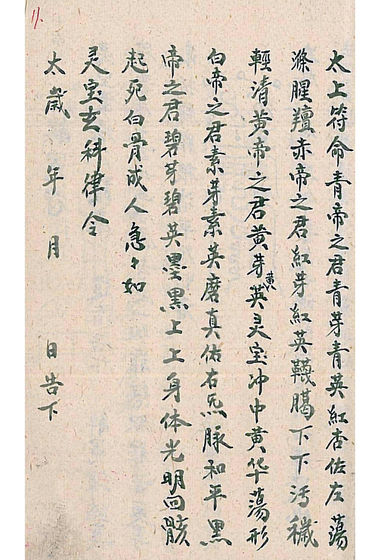 太上符命青帝之君青芽青英紅杏佐左蕩
滌腥羶赤帝之君紅芽紅英韈腸下下污穢
輕清黃帝之君黃芽黃英灵宝冲中黄华蕩形
白帝之君素芽素英磨真佑右炁脉和平黑
帝之君碧芽碧英墨黑上上身体光明回骸
起死白骨成人急々如
灵宝玄科律令
太歲 年 月 日告下